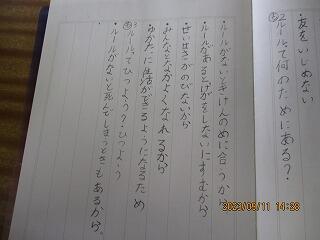 ・友をいじめない
2 ルールって何のためにある?
・ルールがないときけんのめに合うから
・ルールがあるとけがをしないにすむから
・せいせきがのびないから
・みんなとなかよくなれるから
・ゆかたに生活ができるようになるため
3 ルールってひつよう?・ひつよう
・ルールがないと死んでしまうときもあるから。
2023/05/11 14:28